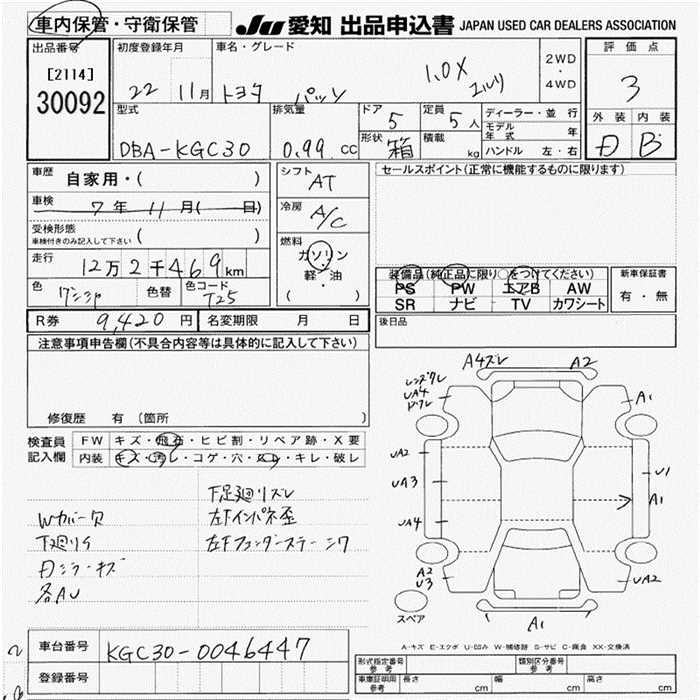 車内保管・守衛保管
JU 愛知 出品申込書 JAPAN USED CAR DEALERS ASSOCIATION
出品番号
[2114]
30092
初度登録年月
22 11月
車名・グレード
トヨタ パッソ 1.0X
2WD
・
4WD
評価点
3
外装 内装
D B
型式
DBA-KGC30
排気量
0.99 cc
ドア 5
定員 5人
形状 箱
積載 kg
ディーラー・並行
モデル年式 年
ハンドル 左・右
車歴
自家用・( )
車検
7年 11月( 日)
受検形態
車検付きのみ記入して下さい ( )
走行
12万2千469km
色
色替
色コード
T25
シフト
AT
冷房
A/C
燃料
ガソリン
・
軽・油
( )
セールスポイント(正常に機能するものに限ります)
装備品(純正品に限り○をつけてください)
PS PW エアB AW
SR ナビ TV カワシート
新車保証書
有・無
R券 9,420円
名変期限 月 日
後日品
注意事項申告欄(不具合内容等は具体的に記入して下さい)
修復歴 有(箇所 )
検査員
記入欄
FW キズ・飛石・ヒビ割・リペア跡・X要
内装 キズ・汚レ・コゲ・穴・スレ・キレ・破レ
下足廻リズレ
Wカバー欠
左F インパネ歪
下廻りサ
左Fフェンダーステーシワ
各AU
A4ズレ A2
レンズワレ
UA4
A1
UA2
UA3
U1
A1
UA4
A2
U3
UA2
スペア
A1
A・キズ E・エクボ U・凹み W・補修跡 S・サビ C・腐食 XX・交換済
車台番号
KGC30-0046447
登録番号
形式指定番号
参考
類別区分番号
参考
車庫証明用
参考
長さ cm
幅 cm
高さ cm